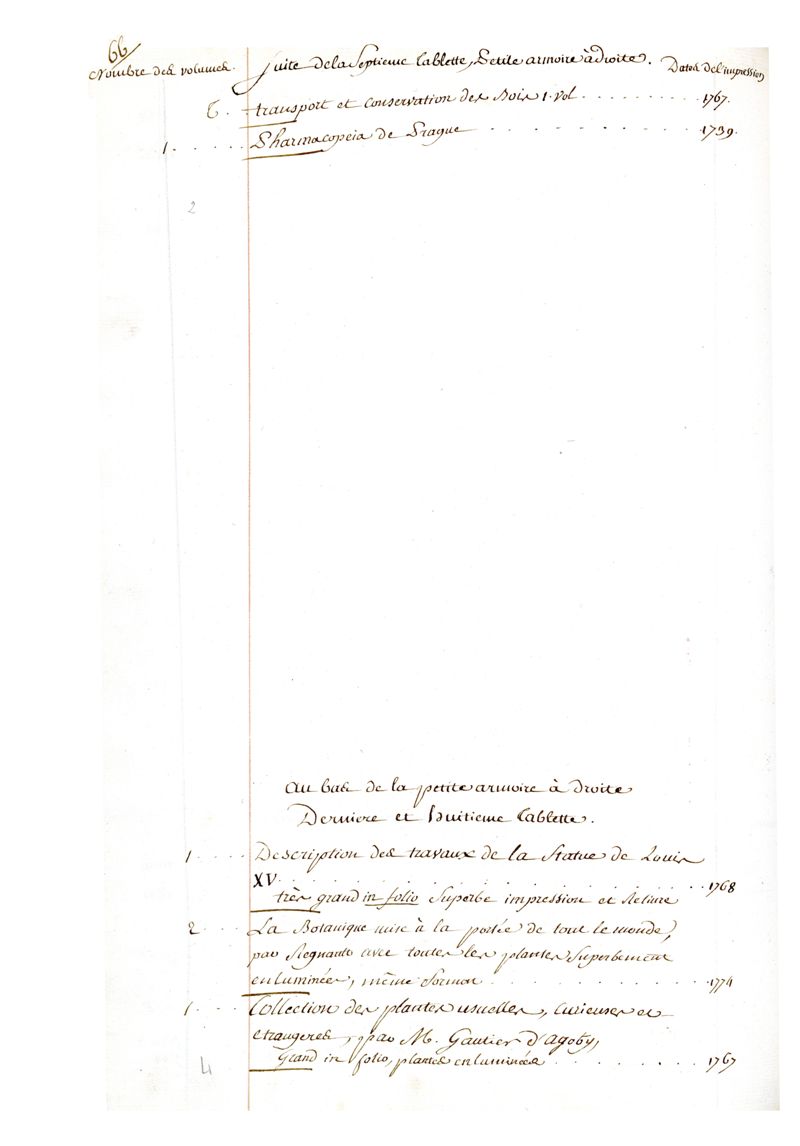 66
Nombre des volumes. Suite de la Septieme tablette, Petite armoire à droite. Dates de l'impression
6. transport et conservation des Bois 1. vol . . . . . . . . . 1767.
1. . . . . . Pharmacopeia de Prague . . . . . . . . . . 1739.
2
Au bas de la petite armoire à droite
Derniere et huitieme tablette.
1. . . . . Description des travaux de la Statue de Louis
XV. . . . . . . . . . . . . . . . . 1768
très grand in folio Superbe impression et Reliure
2. . . . La Botanique mise à la portée de tout le monde,
par Regnault avec toutes les plantes Superbement
enluminées, même format . . . . . . . . . . 1774
1. . . . Collection des plantes usuelles, curieuses et
etrangeres, par M. Gautier d'agoty,
4 Grand in folio, plantes enluminées . . . . . . . . 1767